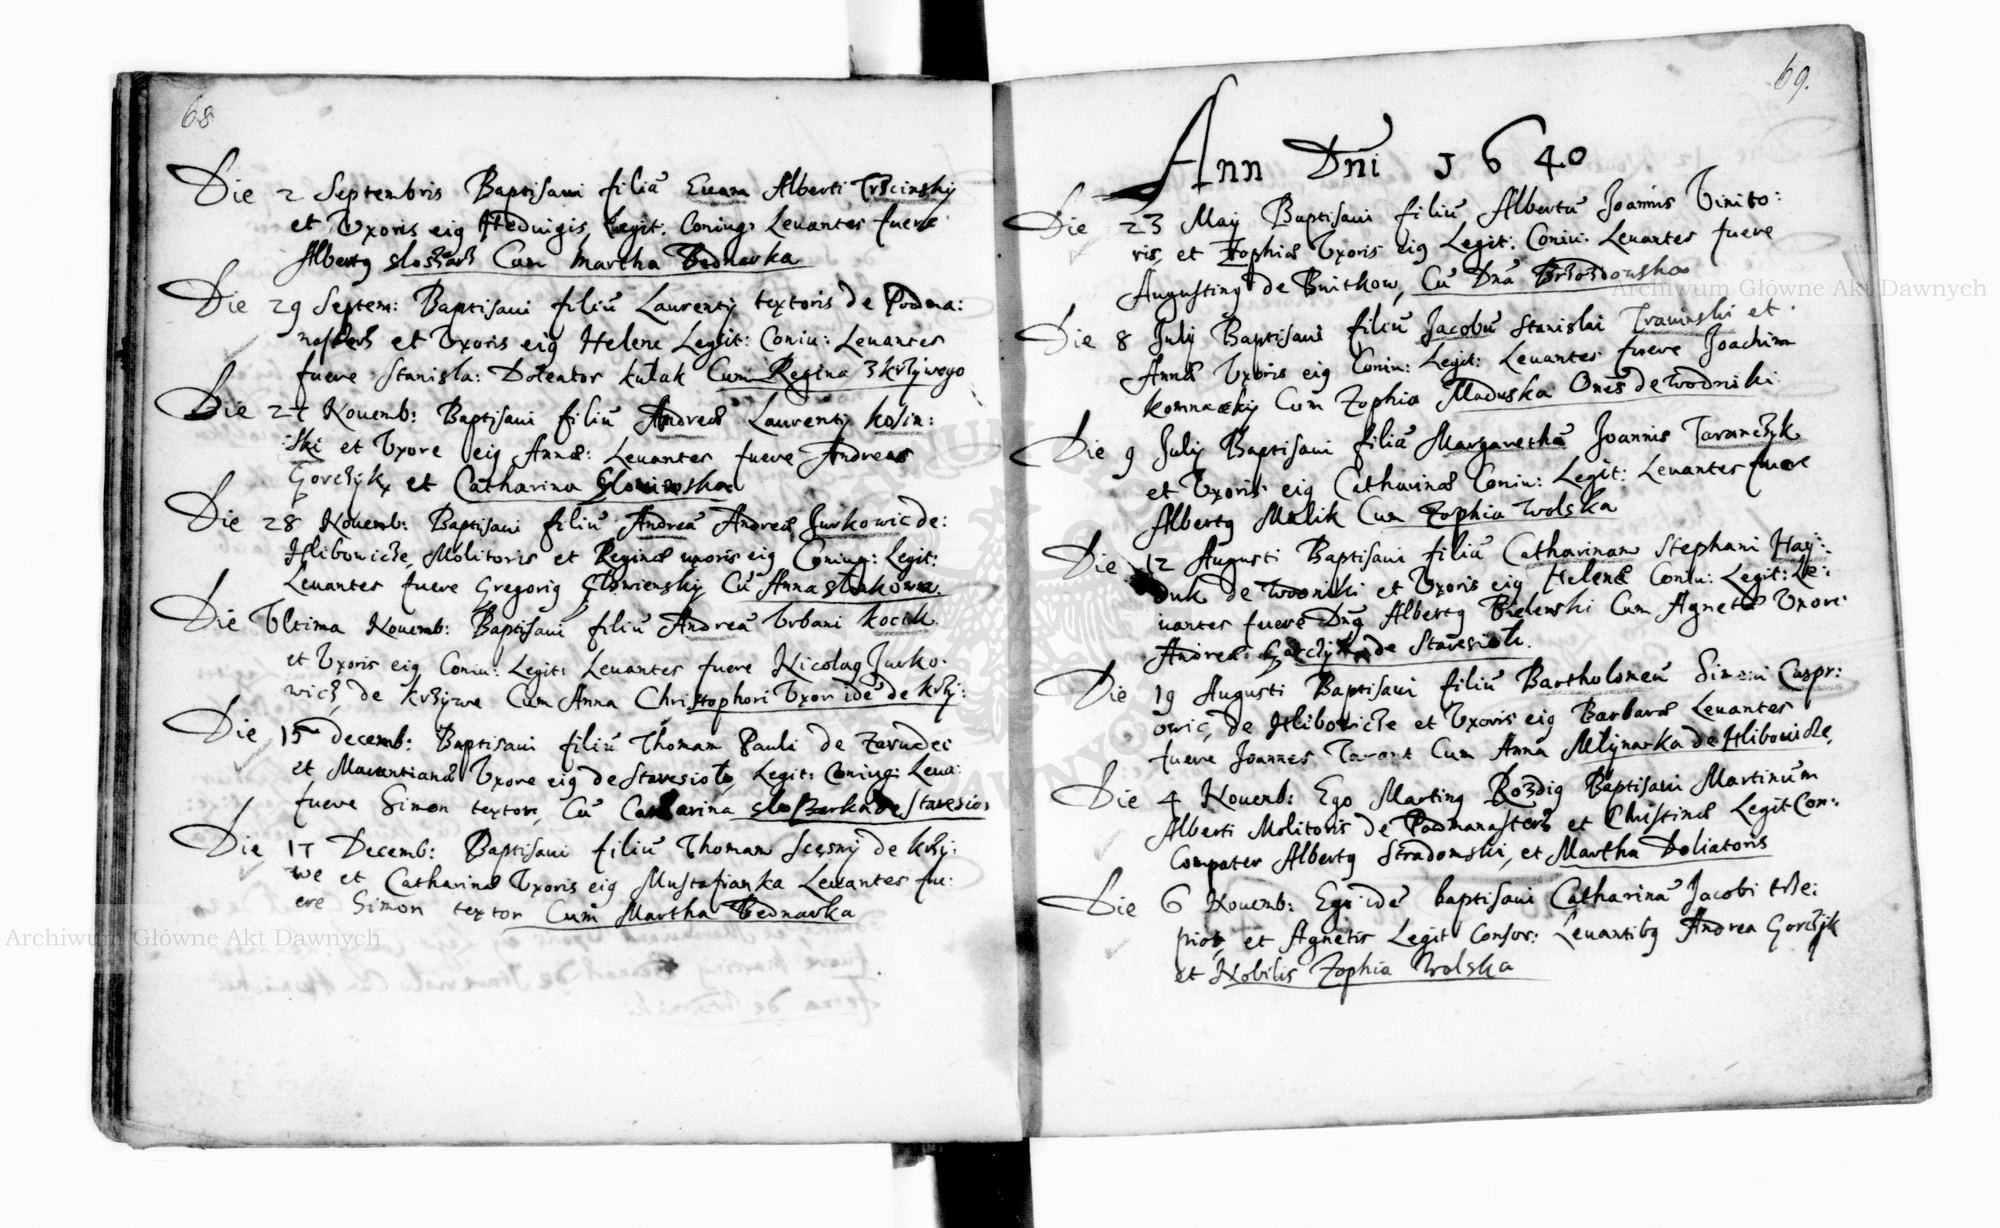 68
Die 2 Septembris Baptisaui filiā Euam Alberti Trzcinskÿ
et Vxoris eig Heduigis, Legit: Coniug: Leuantes fuere
Albertg slosarz Cum Martha Bednarka
Die 29 Septem: Baptisaui filiū Laurentÿ textoris de Podma:
nasterz et Vxoris eig Helene Legit: Coniu: Leuantes
fuere Stanisla: Doleator kulak Cum Regina z krzÿwego
Die 27 Nouemb: Baptisaui filiū Andreā Laurentÿ kosin:
ski et Vxore eig Annæ: Leuantes fuere Andreas
Gorczÿk et Catharina
Die 28 Nouemb: Baptisaui filiū Andreā Andreæ Jurkowic de:
Hlibowicze, Molitoris et Reginæ uxoris eig Coniug: Legit:
Leuantes fuere Gregorig Glowienskÿ Cū Anna
Die Vltima Nouemb: Baptisaui filiū Andreā Vrbani kocik
et Vxoris eig Coniu: Legit: Leuantes fuere Nicolag Jurko:
wicz de krzÿwe Cum Anna Christophori Vxor idē de krzÿ:
Die 15 Decemb: Baptisaui filiū Thomam Pauli de Zarudci
et Mariantianæ Vxore eig de Staresioło, Legit: Coniug: Leua:
fuere Simon textor, Cū Catharina de Staresioł
Die 17 Decemb: Baptisaui filiū Thomam Scęsnÿ de krzÿ:
we et Catharinæ Vxoris eig Mustafianka Leuantes fu:
ere Simon textor Cum Martha Bednarka
69.
Ann Dñi 1640
Die 23 Maÿ Baptisaui filiū Albertū Joannis Vinito:
ris, et Zophiæ Vxoris eig Legit: Coniu: Leuantes fuere
Augusting de Bnitkow, Cū Dnā Brzozdowska
Die 8 Julÿ Baptisaui filiū Jacobū Stanislai Trawinski et
Annæ Vxoris eig Coniu: Legit: Leuantes fuere Joachim
Cum Zophia Maduska de Wodniki
Die 9 Julÿ Baptisaui filiā Margarethā Joannis Taranczÿk
et Vxoris eig Catharinæ Coniu: Legit: Leuantes fuere
Albertg Malik Cum Zophia Wolska
Die 12 Augusti Baptisaui filiū Catharinam Stephani Haÿ:
duk de Wodniki et Vxoris eig Helenæ Coniu: Legit: Le:
uantes fuere Dng Albertg Bielewski Cum Agnete Vxore
Andreæ Gorczÿk de Staresioło.
Die 19 Augusti Baptisaui filiū Bartholomeū Simeoni Caspr:
owic, de Hlibowicze et Vxoris eig Barbaræ Leuantes
fuere Joannes Tarant Cum Anna Mlÿnarka de Hlibowicze,
Die 4 Nouemb: Ego Marting Rozdig Baptisaui Martinum
Alberti Molitoris de Podmanasterz et Christinæ Legit Con:
Compater Albertg Stradomski, et Martha Doliatoris
Die 6 Nouemb: Ego idē baptisaui Catharinā Jacobi
et Agnetis Legit Consor: Leuantibg Andrea Gorczÿk
et Nobilis Zophia Wolska
Archiwum Główne Akt Dawnych
Archiwum Główne Akt Dawnych